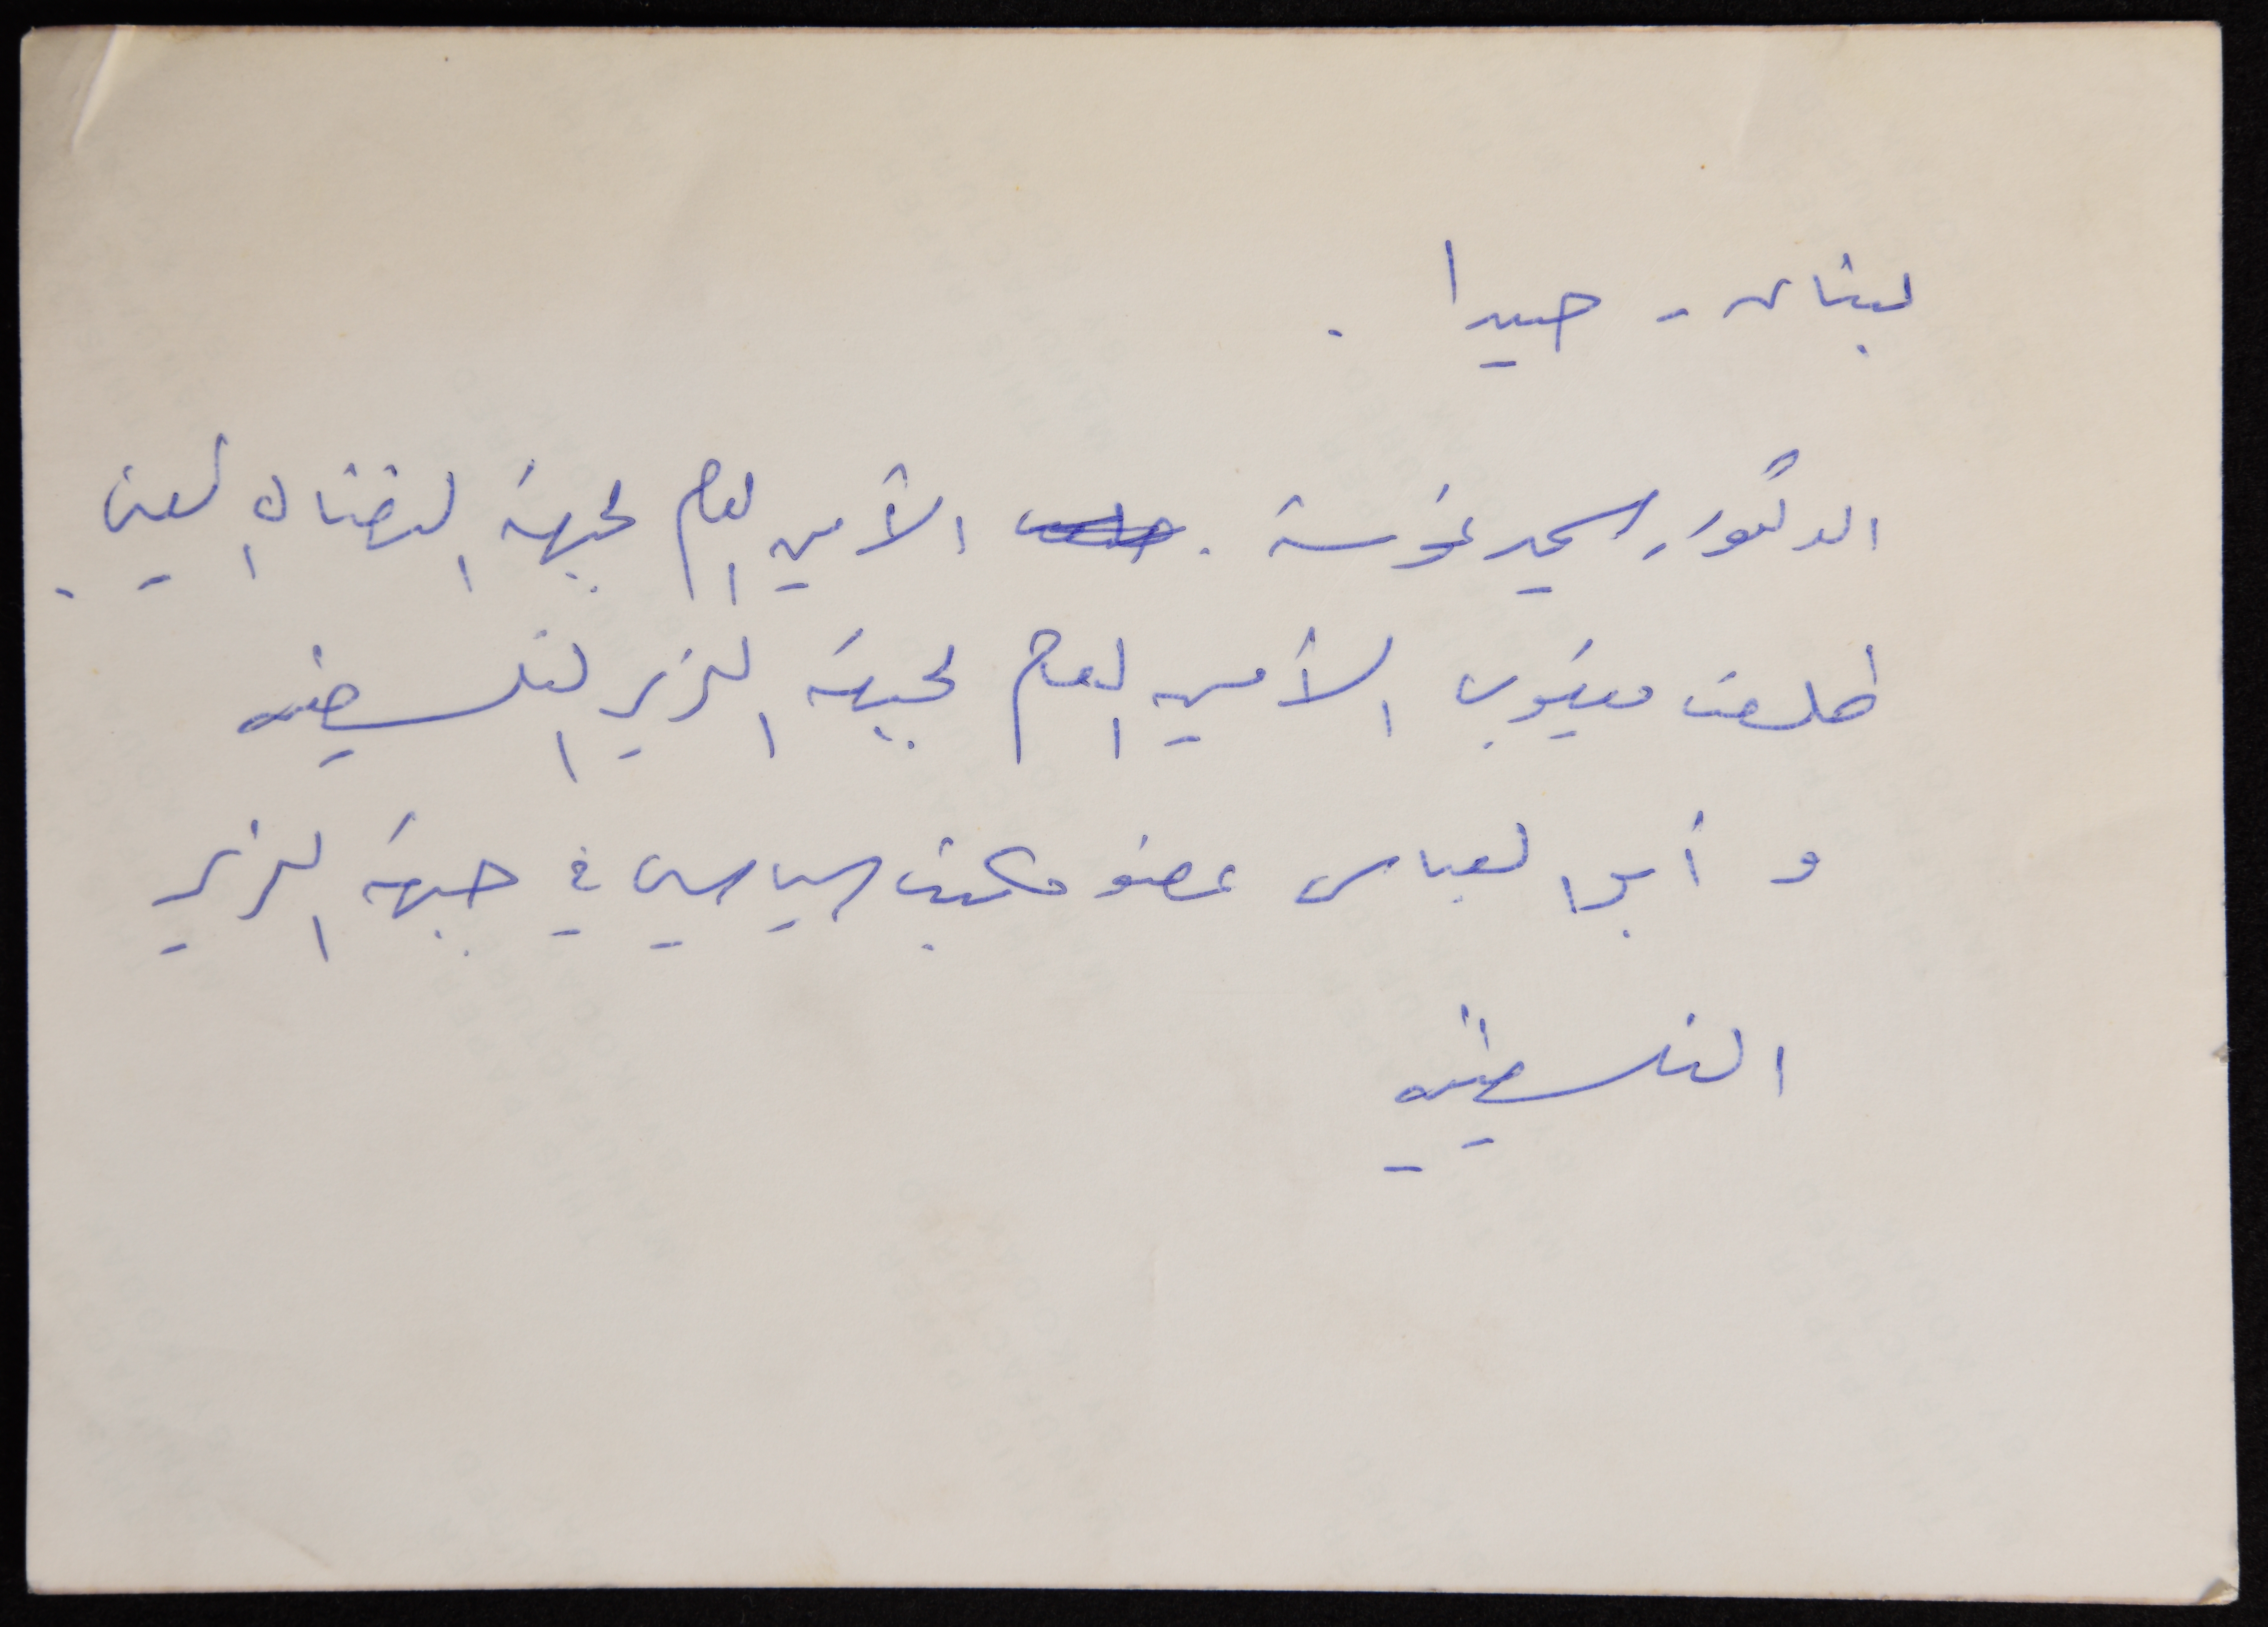 لبنان - صيدا .
الدكتور سمير غوشة . الأمين العام لجبهة النضال الشعبي .
طلعت يعقوب الأمين العام لجبهة التحرير الفلسطينية
و أبو العباس عضو مكتب السياسي في جبهة التحرير
الفلسطينية